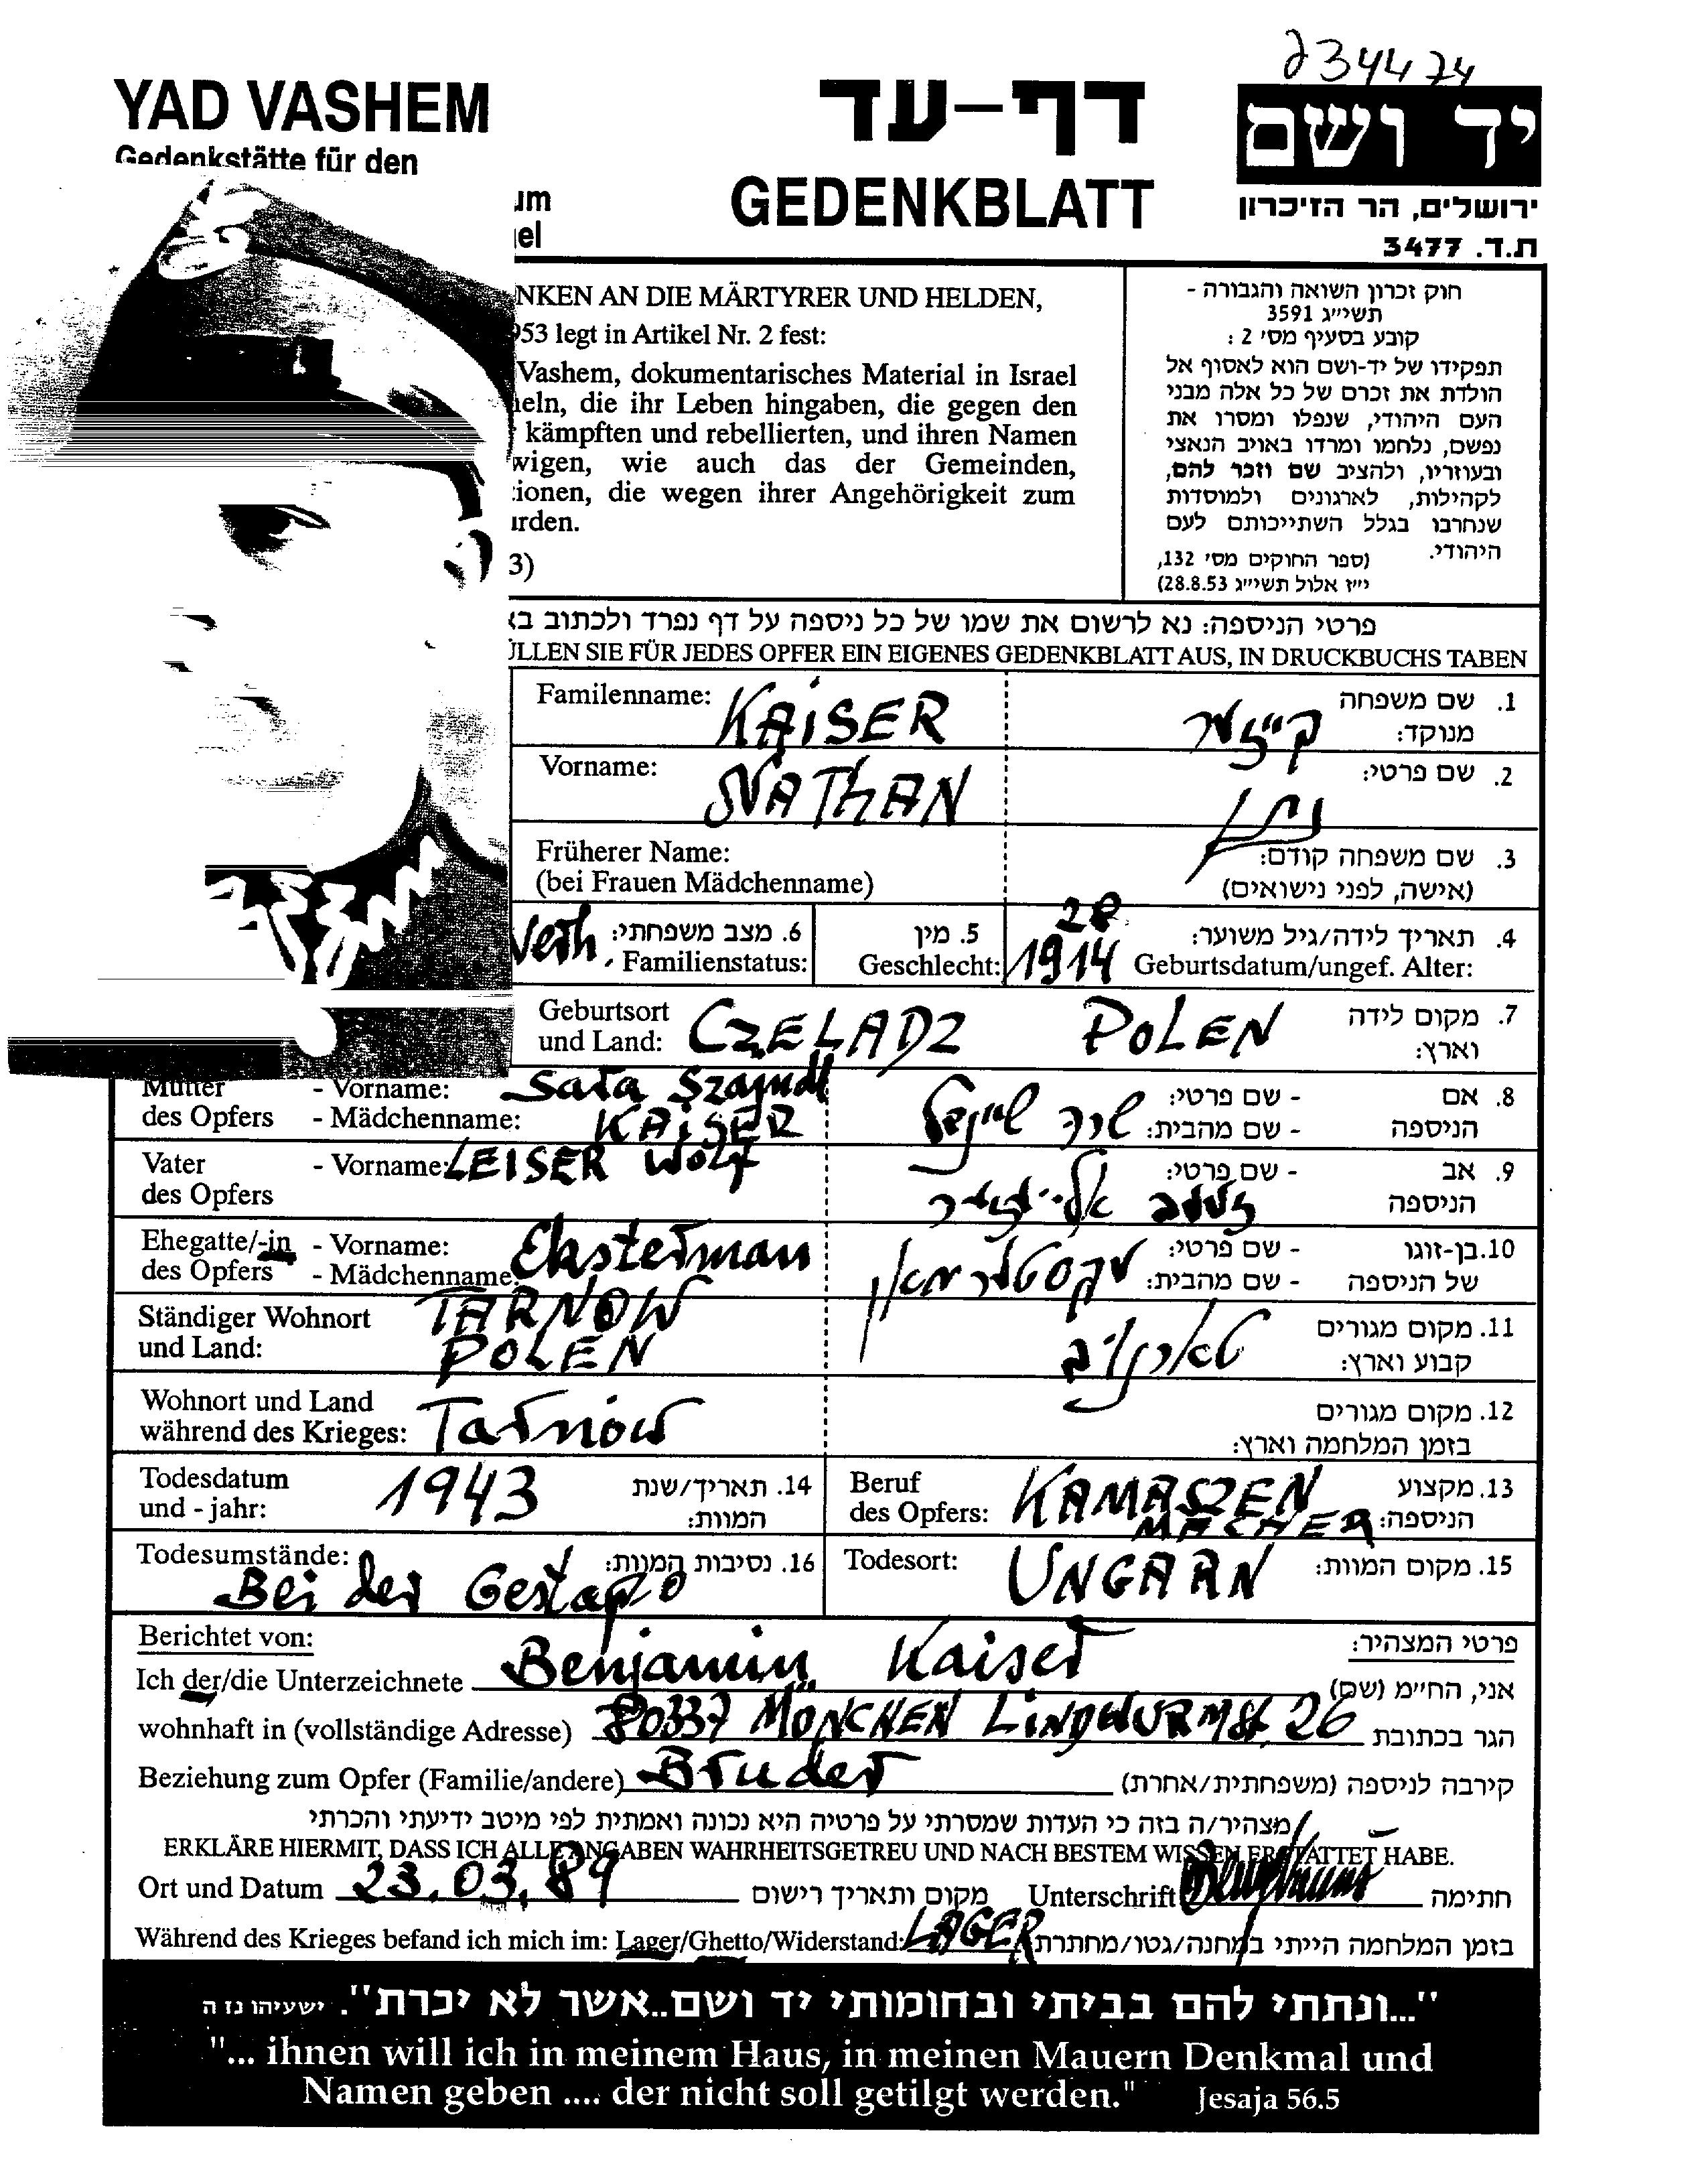 234474
YAD VASHEM
Gedenkstätte für den
דף-עד
GEDENKBLATT
יד ושם
ירושלים, הר הזיכרון
ת.ד. 3477
NKEN AN DIE MÄRTYRER UND HELDEN,
953 legt in Artikel Nr. 2 fest:
Vashem, dokumentarisches Material in Israel
eln, die ihr Leben hingaben, die gegen den
kämpften und rebellierten, und ihren Namen
wigen, wie auch das der Gemeinden,
ionen, die wegen ihrer Angehörigkeit zum
urden.
3)
חוק זכרון השואה והגבורה -
תשי״ג 3591
קובע בסעיף מס׳ 2 :
תפקידו של יד-ושם הוא לאסוף אל
הולדת את זכרם של כל אלה מבני
העם היהודי, שנפלו ומסרו את
נפשם, נלחמו ומרדו באויב הנאצי
ובעוזריו, ולהציב שם וזכר להם,
לקהילות, לארגונים ולמוסדות
שנחרבו בגלל השתייכותם לעם
היהודי.
(ספר החוקים מס׳ 132,
י״ז אלול תשי״ג 28.8.53)
פרטי הניספה: נא לרשום את שמו של כל ניספה על דף נפרד ולכתוב
ÜLLEN SIE FÜR JEDES OPFER EIN EIGENES GEDENKBLATT AUS, IN DRUCKBUCHS TABEN
1. שם משפחה
מנוקד:
קייזער
Familenname: KAiSER
2. שם פרטי:
נתן
Vorname: NATHAN
3. שם משפחה קודם:
(אישה, לפני נישואים)
Früherer Name:
(bei Frauen Mädchenname)
4. תאריך לידה/גיל משוער:
Geburtsdatum/ungef. Alter: 28 1914
5. מין
Geschlecht:
6. מצב משפחתי:
Familienstatus: Verh.
7. מקום לידה
וארץ:
Geburtsort
und Land: CZELADZ POLEN
8. אם - שם פרטי:
הניספה - שם מהבית:
Mutter - Vorname: Sara Szajndl
des Opfers - Mädchenname: KAiSER
9. אב - שם פרטי:
הניספה
Vater - Vorname: LEISER Wolf
des Opfers
10. בן-זוגו - שם פרטי:
של הניספה - שם מהבית:
עקסטערמאן
Ehegatte/-in - Vorname: Eksterman
des Opfers - Mädchenname:
11. מקום מגורים
קבוע וארץ:
טארנוב
Ständiger Wohnort TARNOW
und Land: POLEN
12. מקום מגורים
בזמן המלחמה וארץ:
Wohnort und Land
während des Krieges: Tarnow
13. מקצוע
הניספה:
Beruf
des Opfers: KAMASZEN
MACHER
14. תאריך/שנת
המוות:
Todesdatum
und - jahr: 1943
15. מקום המוות:
Todesort: UNGARN
16. נסיבות המוות:
Todesumstände:
Bei der Gestapo
Berichtet von:
פרטי המצהיר:
Ich der/die Unterzeichnete Benjamin Kaiser אני, החי״מ (שם)
wohnhaft in (vollständige Adresse) 80337 MÜNCHEN LiNDWURMSt. 26 הגר בכתובת
Beziehung zum Opfer (Familie/andere) Bruder קירבה לניספה (משפחתית/אחרת)
מצהיר/ה בזה כי העדות שמסרתי על פרטיה היא נכונה ואמתית לפי מיטב ידיעתי והכרתי
ERKLÄRE HIERMIT, DASS ICH ALLE ANGABEN WAHRHEITSGETREU UND NACH BESTEM WISSEN ERSTATTET HABE.
Ort und Datum 23.03.89 מקום ותאריך רישום Unterschrift חתימה
Während des Krieges befand ich mich im: Lager/Ghetto/Widerstand: LAGER בזמן המלחמה הייתי במחנה/גטו/מחתרת
"...ונתתי להם בביתי ובחומותי יד ושם..אשר לא יכרת". ישעיהו נז ה
"... ihnen will ich in meinem Haus, in meinen Mauern Denkmal und
Namen geben .... der nicht soll getilgt werden." Jesaja 56.5